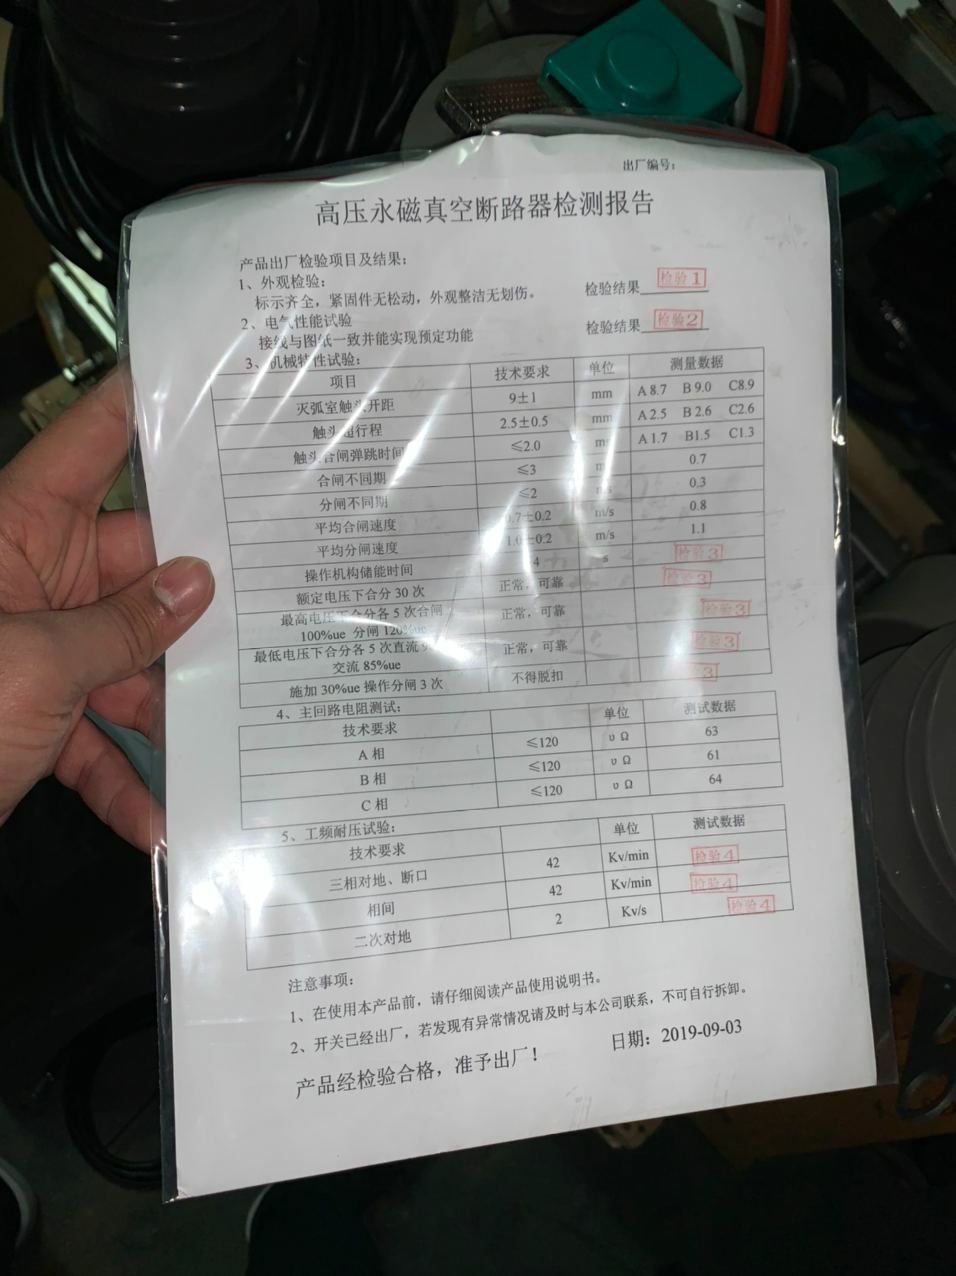 出厂编号：
高压永磁真空断路器检测报告
产品出厂检验项目及结果：
1、外观检验：
标示齐全，紧固件无松动，外观整洁无划伤。 检验结果 检验1
2、电气性能试验
接线与图纸一致并能实现预定功能 检验结果 检验2
3、机械特性试验：
项目 技术要求 单位 测量数据
灭弧室触头开距 9±1 mm A 8.7 B 9.0 C8.9
触头超行程 2.5±0.5 mm A 2.5 B 2.6 C2.6
触头合闸弹跳时间 ≤2.0 A 1.7 B1.5 C1.3
合闸不同期 ≤3 0.7
分闸不同期 ≤2 0.3
平均合闸速度 0.7±0.2 m/s 0.8
平均分闸速度 1.0±0.2 m/s 1.1
操作机构储能时间 4 s 检验3
额定电压下合分 30 次 正常，可靠 检验3
最高电压下合分各 5 次合闸 正常，可靠 检验3
100%ue 分闸 120%ue
最低电压下合分各 5 次直流 正常，可靠 检验3
交流 85%ue
施加 30%ue 操作分闸 3 次 不得脱扣 检验3
4、主回路电阻测试：
技术要求 单位 测试数据
A 相 ≤120 υ Ω 63
B 相 ≤120 υ Ω 61
C 相 ≤120 υ Ω 64
5、工频耐压试验：
技术要求 单位 测试数据
三相对地、断口 42 Kv/min 检验4
相间 42 Kv/min 检验4
二次对地 2 Kv/s 检验4
注意事项：
1、在使用本产品前，请仔细阅读产品使用说明书。
2、开关已经出厂，若发现有异常情况请及时与本公司联系，不可自行拆卸。
产品经检验合格，准予出厂！ 日期：2019-09-03